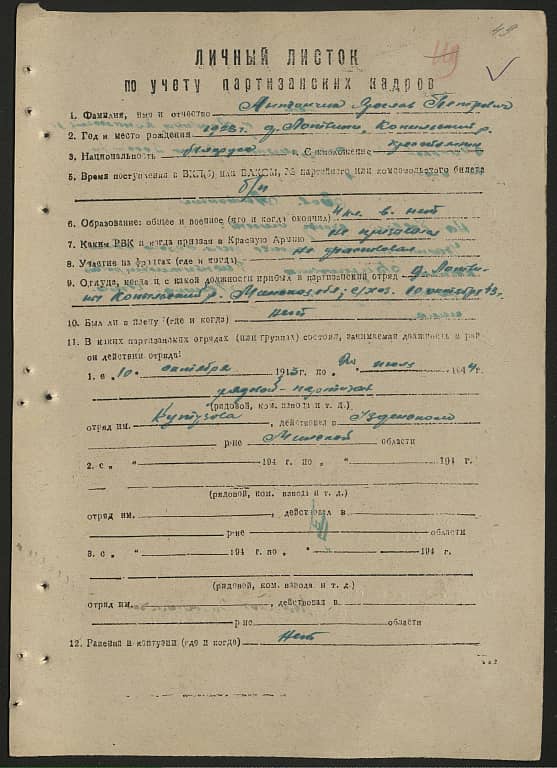 49
49
ЛИЧНЫЙ ЛИСТОК
по учету партизанских кадров
1. Фамилия, имя и отчество Петрович
2. Год и место рождения 1928 г. д. Лотвины, Копыльский р.
3. Национальность белорус 4. С положение крестьянин
5. Время поступления в ВКП(б) или ВЛКСМ, № партийного или комсомольского билета
б/п
6. Образование: общее и военное (что и когда окончил) 4 кл. в. нет
7. Каким РВК и когда призван в Красную Армию не призвался
8. Участие на фронтах (где и когда) не участвовал
9. Откуда, когда и с какой должности прибыл в партизанский отряд д. Лотви-
ны Копыльский р. Минской обл; с/хоз. 10 октября 43.
10. Был ли в плену (где и когда) нет
11. В каких партизанских отрядах (или группах) состоял, занимаемая должность и рай-
он действий отряда:
1. с „ 10 “ октября 1943 г. по „ “ июль 1944 г.
рядовой - партизан
(рядовой, ком. взвода и т. д.)
отряд им. Кутузова, действовал в Узденском
р-не Минской области
2. с „ “ 194 г. по „ “ 194 г.
(рядовой, ком. взвода и т. д.)
отряд им. , действовал в
р-не области
3. с „ “ 194 г. по „ “ 194 г.
(рядовой, ком. взвода и т. д.)
отряд им. , действовал в
р-не области
12. Ранения и контузии (где и когда) Нет